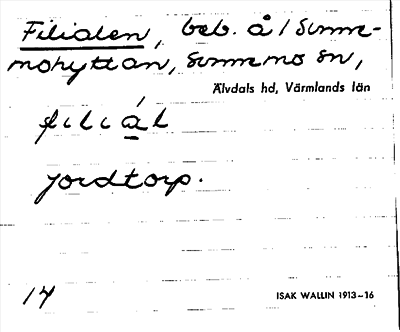 Filialen, beb. å / Sunne-
mohyttan, Sunnemo sn,
Älvdals hd, Värmlands län
filiál
jordtorp.
14
ISAK WALLIN 1913–16